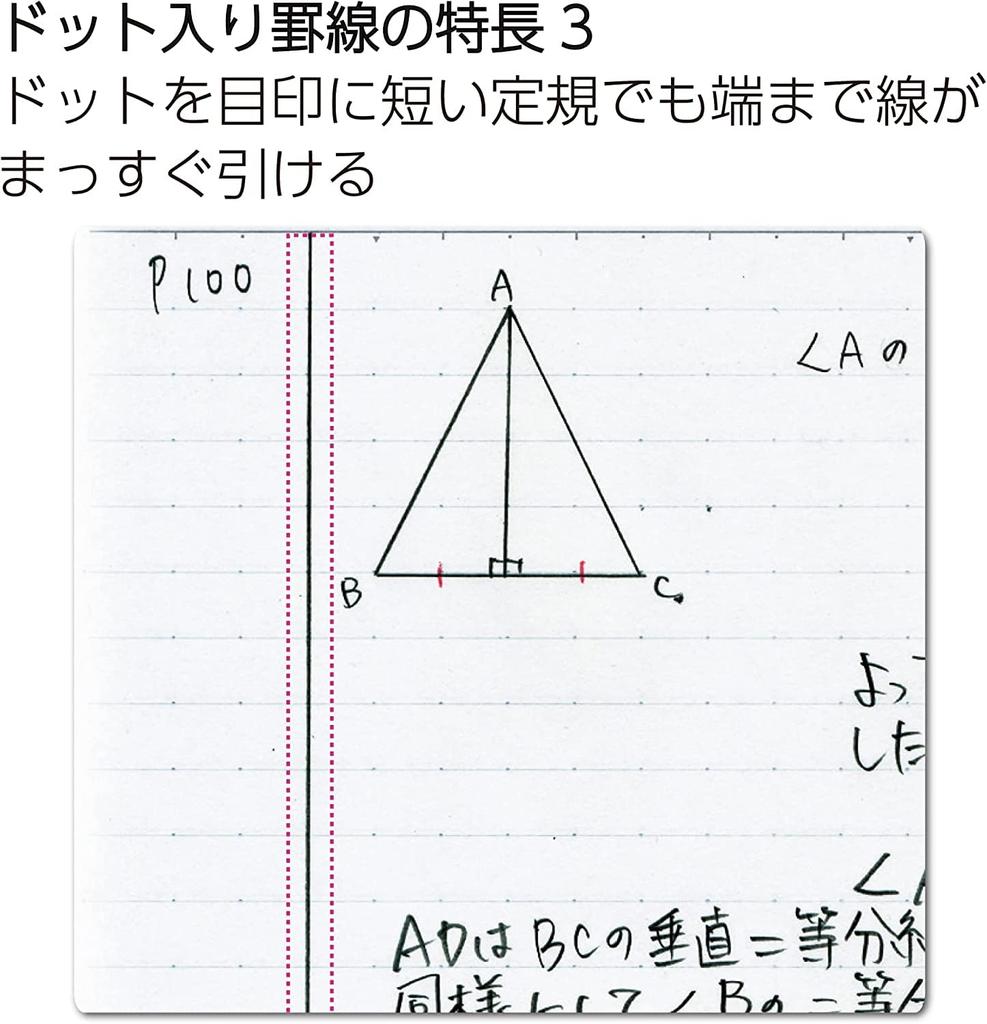 ドット入り罫線の特長3
ドットを目印に短い定規でも端まで線が
まっすぐ引ける
P100
A
∠Aの
B
C
よっ
した
∠
ADはBCの垂直=等分
同様にして∠Bの=等